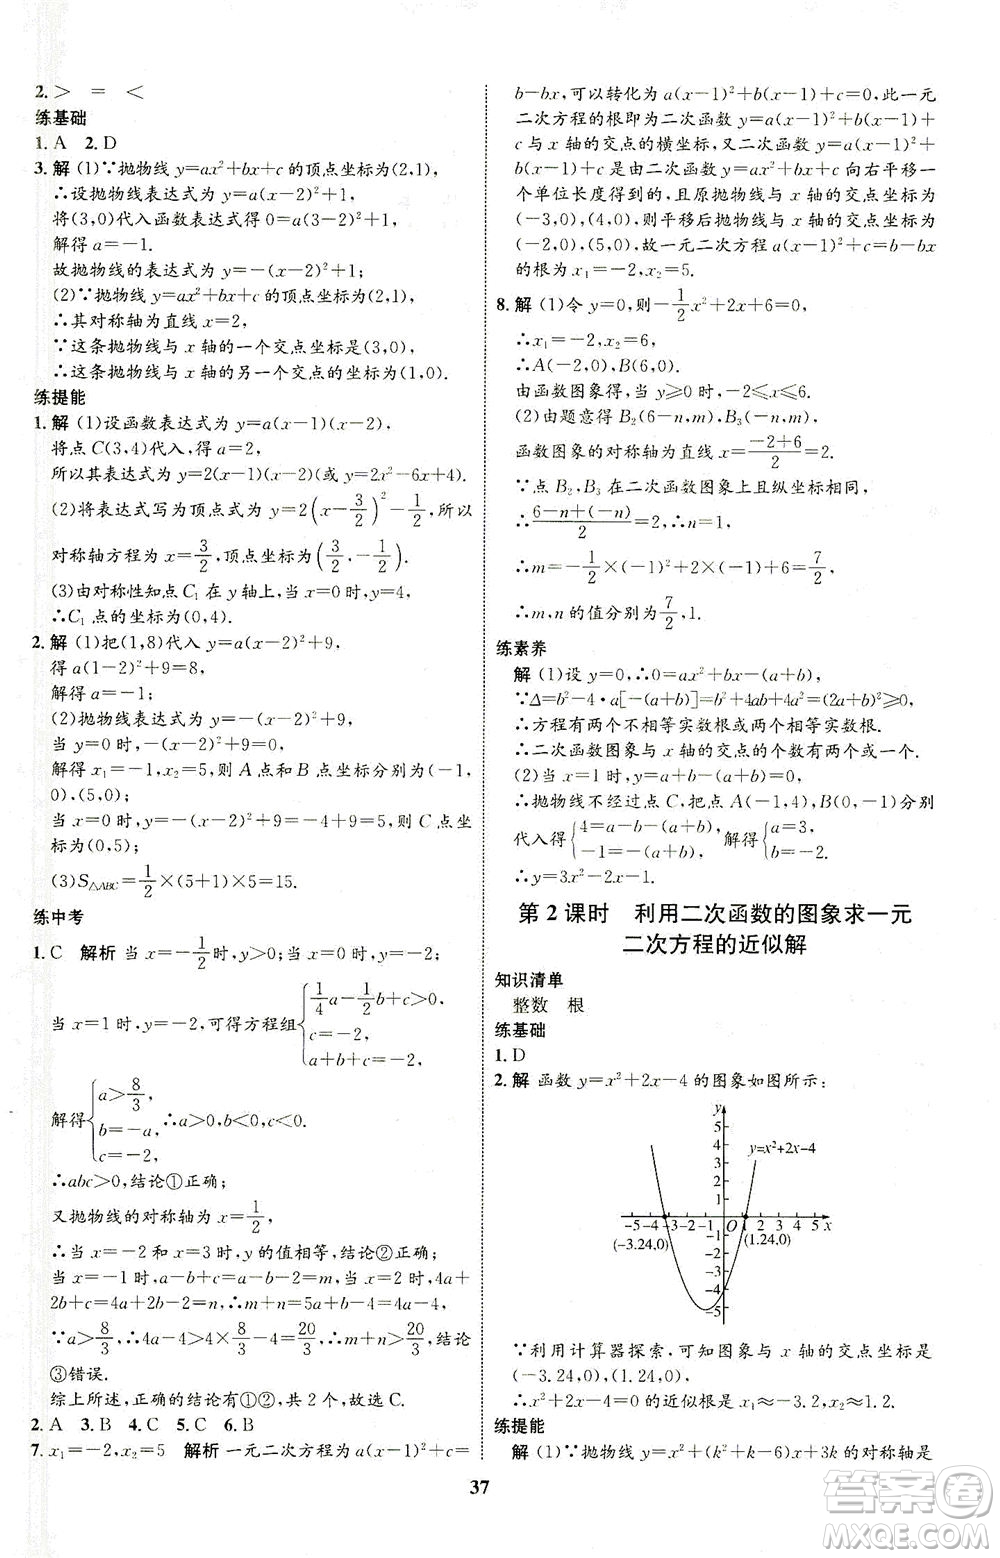 2. > = <
练基础
1. A 2. D
3. 解 (1)∵抛物线 y=ax²+bx+c 的顶点坐标为(2,1),
∴设抛物线表达式为 y=a(x-2)²+1,
将(3,0)代入函数表达式得 0=a(3-2)²+1,
解得 a=-1.
故抛物线的表达式为 y=-(x-2)²+1;
(2)∵抛物线 y=ax²+bx+c 的顶点坐标为(2,1),
∴其对称轴为直线 x=2,
∵这条抛物线与 x 轴的一个交点坐标为(3,0),
∴这条抛物线与 x 轴的另一个交点的坐标为(1,0).
练提能
1. 解 (1)设函数表达式为 y=a(x-1)(x-2),
将点 C(3,4)代入,得 a=2,
所以其表达式为 y=2(x-1)(x-2)(或 y=2x²-6x+4).
(2)将表达式写为顶点式为 y=2(x-3/2)²-1/2,所以
对称轴方程为 x=3/2,顶点坐标为(3/2,-1/2).
(3)由对称性知点 C₁ 在 y 轴上,当 x=0 时,y=4,
∴C₁ 点的坐标为(0,4).
2. 解 (1)把(1,8)代入 y=a(x-2)²+9,
得 a(1-2)²+9=8,
解得 a=-1;
(2)抛物线表达式为 y=-(x-2)²+9,
当 y=0 时,-(x-2)²+9=0,
解得 x₁=-1,x₂=5,则 A 点和 B 点坐标分别为(-1,
0),(5,0);
当 x=0 时,y=-(x-2)²+9=-4+9=5,则 C 点坐
标为(0,5);
(3)S△ABC=1/2×(5+1)×5=15.
练中考
1. C 解析 当 x=-1/2时,y>0,
当 x=1 时,y=-2,可得方程组{1/4a-1/2b+c>0, c=-2, a+b+c=-2,
解得{a>8/3, b=-a, c=-2, ∴a>0,b<0,c<0.
∴abc>0,结论①正确;
又抛物线的对称轴为 x=1/2,
∴当 x=-2 和 x=3 时,y 的值相等,结论②正确;
当 x=-1 时,y=a-b+c=2a-2=m,当 x=4 时,y=16a+
4b+c=12a-2=n,
∵a>8/3,
综上所述,正确的结论有①②,共 2 个,故选 C.
2. A 3. B 4. C 5. C 6. B
7. x₁=-2,x₂=5 解析 一元二次方程为 a(x-1)²+c=
b-bx,可以转化为 a(x-1)²+b(x-1)+c=0,此一元
二次方程的根即为二次函数 y=a(x-1)²+b(x-1)+
c 与 x 轴的交点的横坐标,又二次函数 y=a(x-1)²+
b(x-1)+c 是由二次函数 y=ax²+bx+c 向右平移一
个单位长度得到的,且原抛物线与 x 轴的交点坐标为
(-3,0),(4,0),则平移后抛物线与 x 轴的交点坐标为
(-2,0),(5,0),故一元二次方程 a(x-1)²+c=b-bx
的根为 x₁=-2,x₂=5.
8. 解 (1)令 y=0,则-1/2x²+2x+6=0,
∴x₁=-2,x₂=6,
∴A(-2,0),B(6,0),
由函数图象得,当 y⩾0 时,-2⩽x⩽6;
(2)由题意得 B₂(6-n,m),B₃(-n,m),
函数图象的对称轴为直线 x=(-2+6)/2=2,
∵点 B₂,B₃ 在二次函数图象上且纵坐标相同,
∴(6-n+(-n))/2=2,∴n=1,
∴m=-1/2×(-1)²+2×(-1)+6=7/2,
∴m,n 的值分别为7/2,1.
练素养
解 (1)设 y=0,∴0=ax²+bx-(a+b),
∵Δ=b²-4·a[-(a+b)]=b²+4ab+4a²=(2a+b)²⩾0,
∴方程有两个不相等实数根或两个相等实数根,
∴二次函数图象与 x 轴的交点的个数有两个或一个.
(2)当 x=1 时,y=a+b-(a+b)=0,
∴抛物线不经过点 C,把点 A(-1,4),B(0,-1)分别
代入得{4=a-b-(a+b), -1=-(a+b), 解得{a=3, b=-2,
∴y=3x²-2x-1.
第 2 课时 利用二次函数的图象求一元
二次方程的近似解
知识清单
整数 根
练基础
1. D
2. 解 函数 y=x²+2x-4 的图象如图所示:
y
5
4
3
2
1
y=x²+2x-4
-5 -4 -3 -2 -1 O 1 2 3 4 5 x
(-3.24,0) (1.24,0)
-1
-2
-3
-4
-5
∵利用计算器探索,可知图象与 x 轴的交点坐标为
(-3.24,0),(1.24,0).
∴x²+2x-4=0 的近似根是 x₁≈-3.2,x₂≈1.2.
练提能
解 (1)∵抛物线 y=x²+(k²+k-6)x+3k 的对称轴是
37
答案圈
MXQE.COM